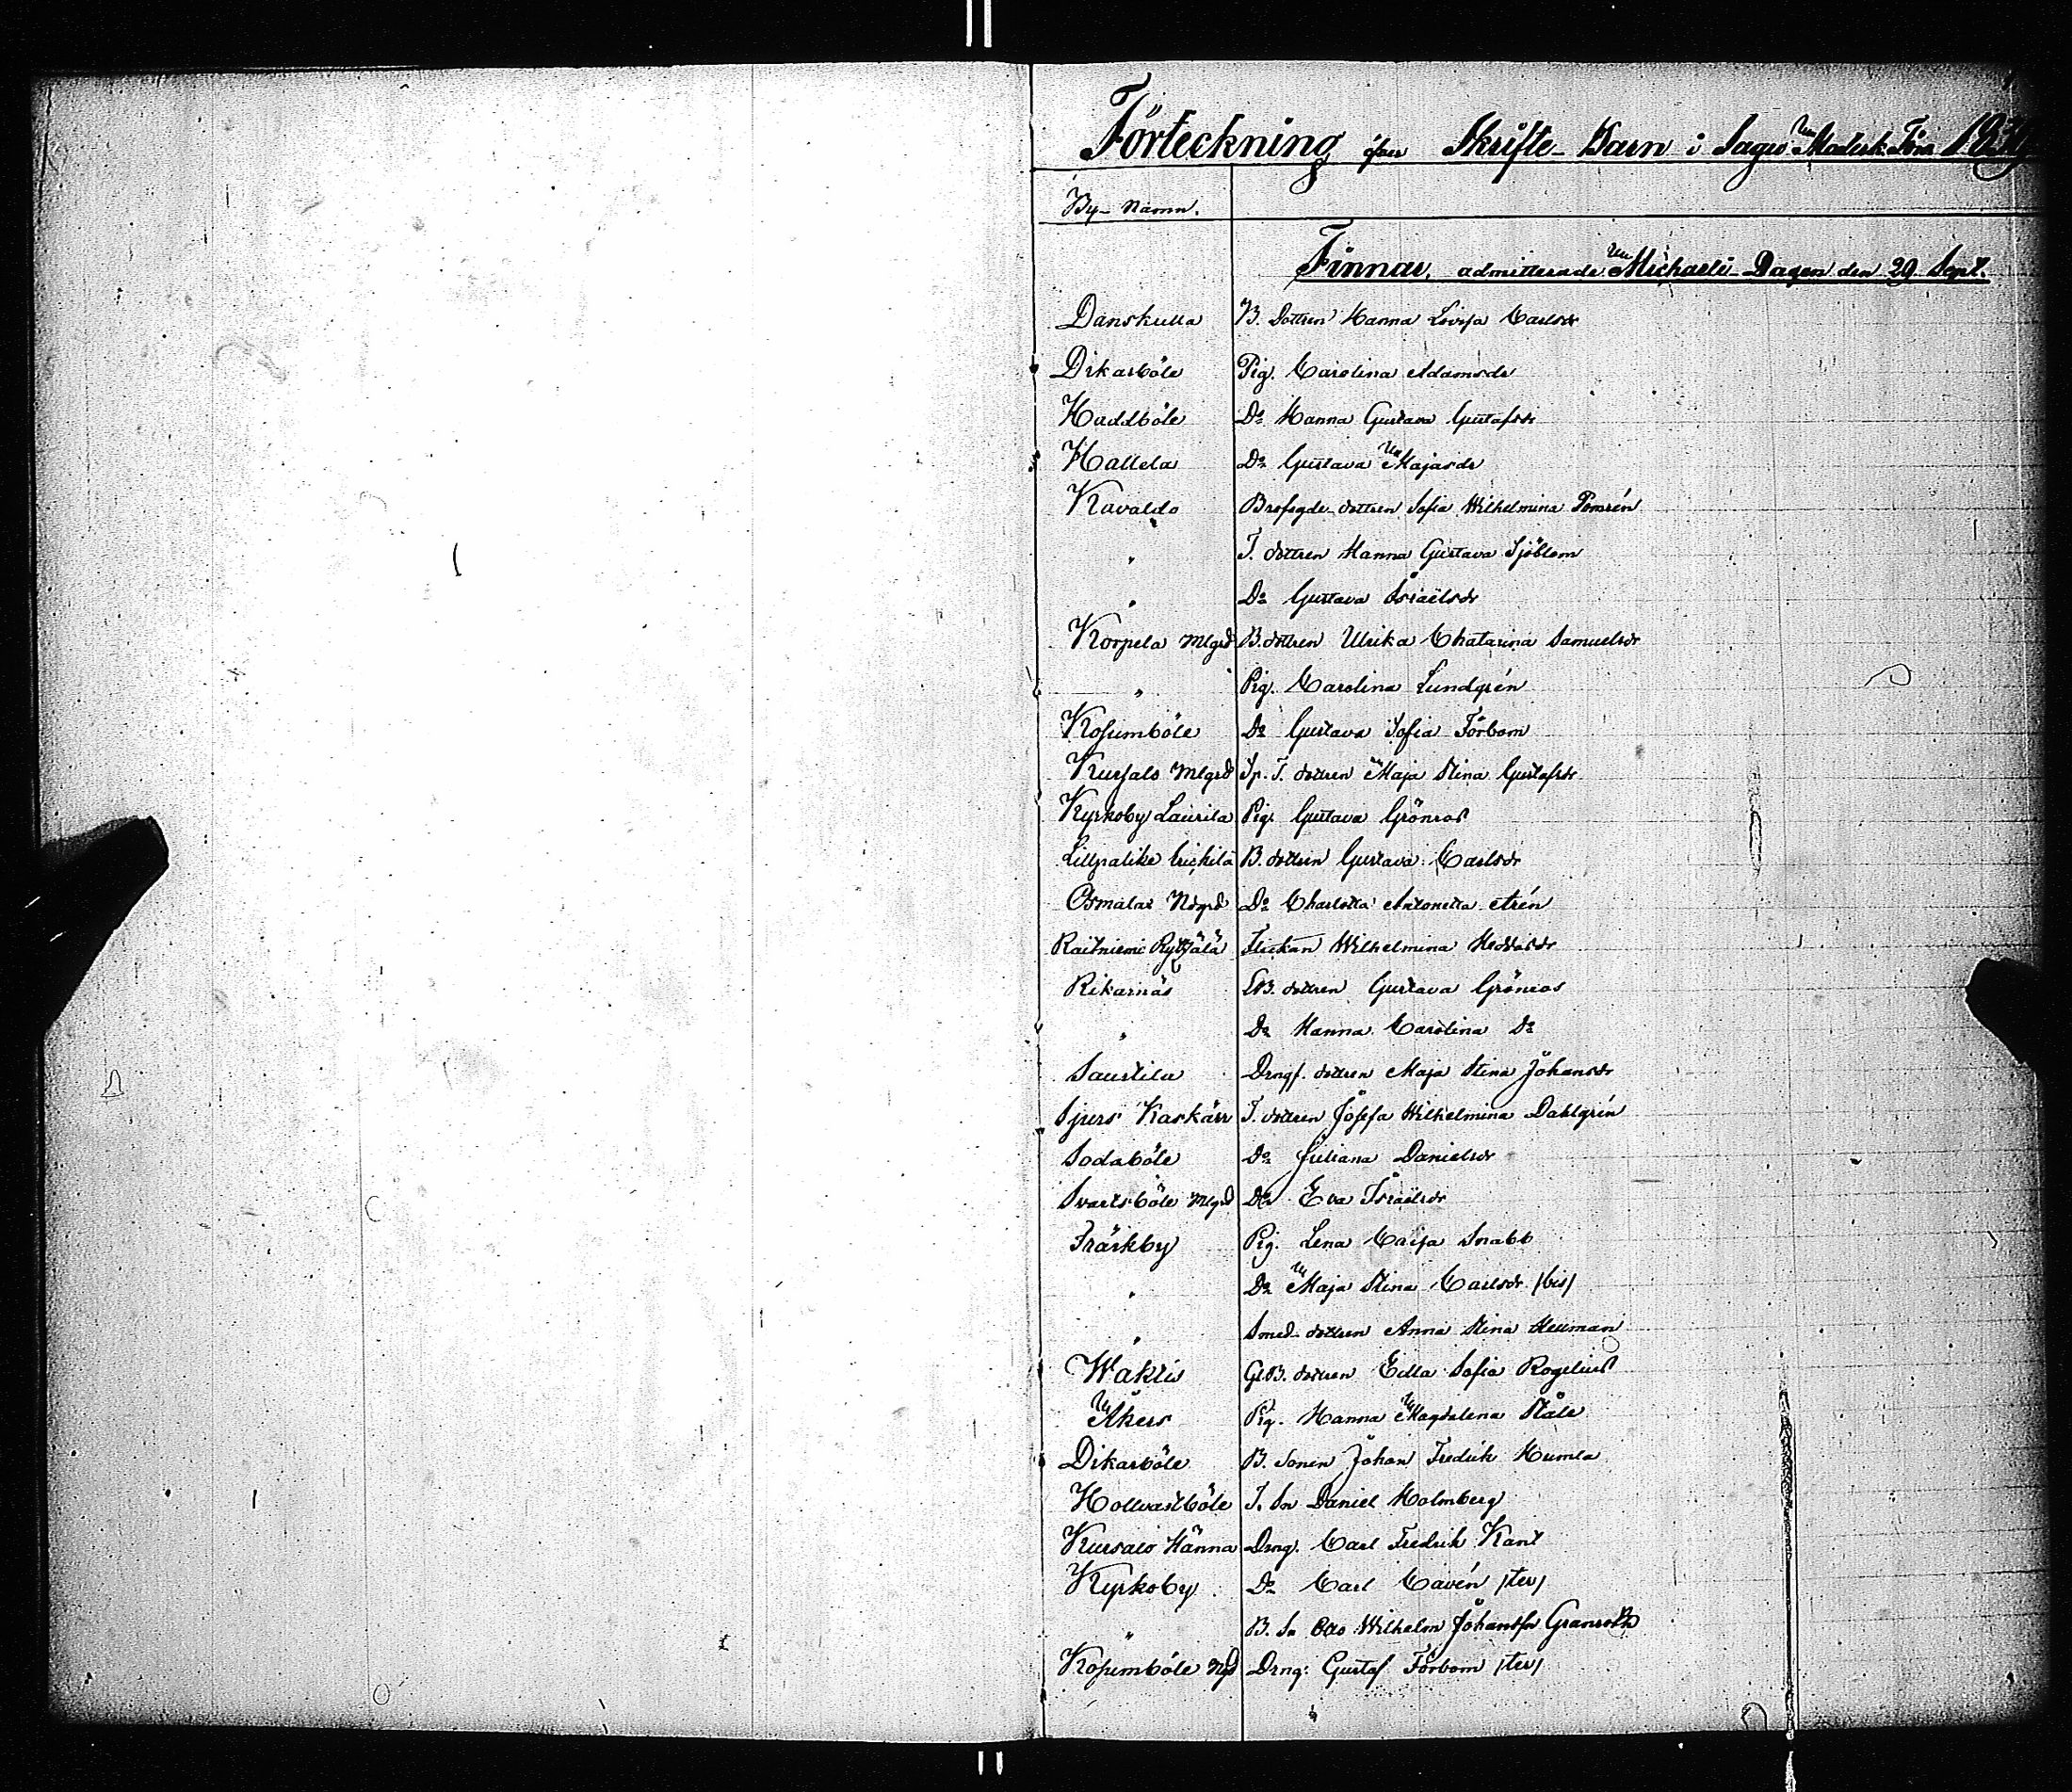 Förteckning öfver Skrifte-Barn i Sagu Moderk. Förs. 1839
By-Namn.
Finnar, admitterade Michaeli-Dagen den 29 Sept.
Danskulla B. Dottren Hanna Lovisa Carlsdr
Dikarböle Pig. Carolina Adamsdr
Haddböle Do Hanna Gustava Gustafsdr
Hallela Do Gustava Majasdr
Kavaldo Brofogde-dottren Sofia Wilhelmina Tomrén
" T. dottren Hanna Gustava Sjöblom
" Do Gustava Israëlsdr
Korpela Mlgrd B. dottren Ulrika Chatarina Samuelsdr
" Pig. Carolina Lundgrén
Kosumböle Do Gustava Sofia Förbom
Kursalo Mlgrd Sp. T. dottren Maja Stina Gustafsdr
Kyrkoby Laurila Pig. Gustava Grönros
Lillpalike Erickilä B. dottren Gustava Carlsdr
Osmalax Ndgrd Do Charlotta Antonetta Arén
Raitniemi Ryttjälä Flickan Wilhelmina Heddasdr
Rikarnäs LB. dottren Gustava Grönros
" Do Hanna Carolina Do
Saustila Drngf. dottren Maja Stina Johansdr
Sjurs Kaskärr T. dottren Josefa Wilhelmina Dahlgrén
Sodaböle Do Juliana Danielsdr
Svartsböle Mlgrd Do Eva Israëlsdr
Träskby Pig. Lena Caisa Snabb
" Do Maja Stina Carlsdr /bis/
" Smed-dottren Anna Stina Heuman
Waktis Gl.B. dottren Edla Sofia Rogelius
Åkers Pig. Hanna Magdalena Ståle
Dikarböle B. Sonen Johan Fredrik Humla
Hollvastböle T. Sn Daniel Holmberg
Kursalo Hänna Drng. Carl Fredrik Kant
Kyrkoby Do Carl Cavén /ter/
" B. Sn Otto Wilhelm Johansson Granroth
Kosumböle Ngd Drng. Gustaf Förbom /ter/